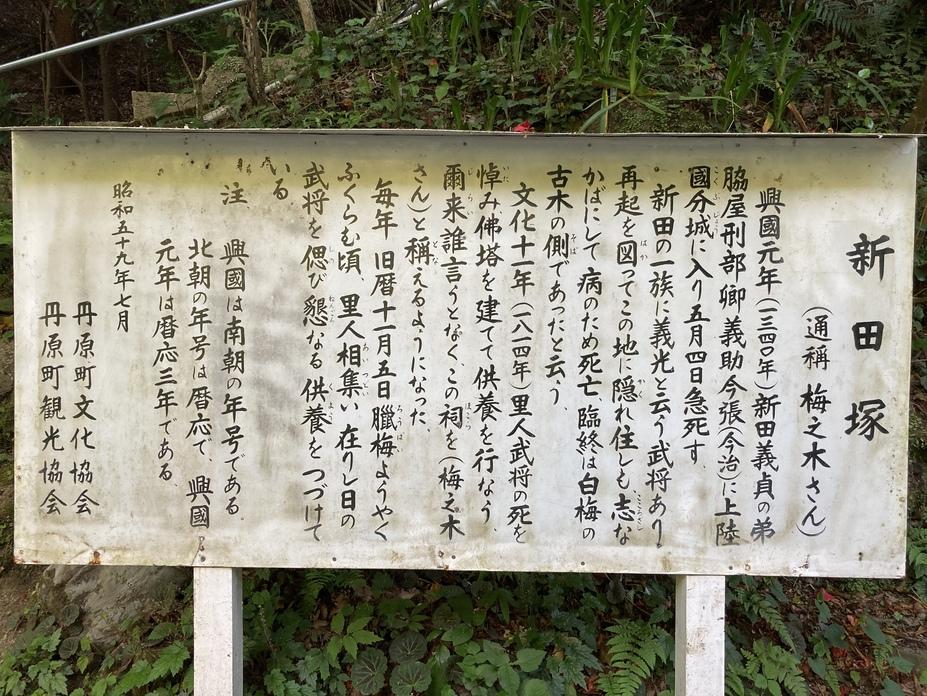 新田塚
（通稱 梅之木さん）
興國元年（一三四〇年）新田義貞の弟
脇屋刑部卿義助今張（今治）に上陸
國分城に入り五月四日急死す
新田の一族に義光と云う武将あり
再起を図ってこの地に隠れ住しも志な
かばにして 病のため死亡 臨終は白梅の
古木の側であったと云う、
文化十一年（一八一四年）里人武将の死を
悼み佛塔を建てて供養を行なう、
爾来誰言うとなく、この祠を（梅之木
さん）と稱えるようになった
毎年 旧暦十一月五日 臘梅ようやく
ふくらむ頃、里人相集い 在りし日の
武将を偲び 懇なる 供養を つづけて
いる
注 興國は南朝の年号である
北朝の年号は暦応で、興國
元年は暦応三年である
昭和五十九年七月
丹原町文化協会
丹原町観光協会